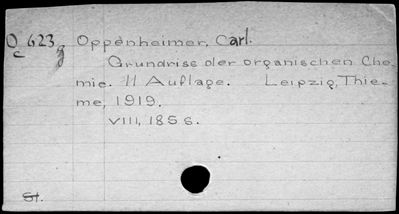 Oc 623 g Oppenheimer, Carl.
Grundriss der organischen Che-
mie. 11 Auflage. Leipzig, Thie-
me, 1919.
VIII, 185 s.
St.